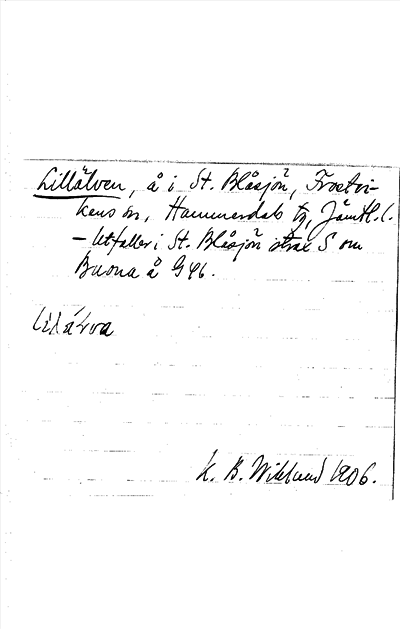 Lillälven, å i St. Blåsjön, Frostvi-
kens sn, Hammerdals tg, Jämtl. l.
– Utfaller i St. Blåsjön strax S om
Buona å G46.
K. B. Wiklund 1906.